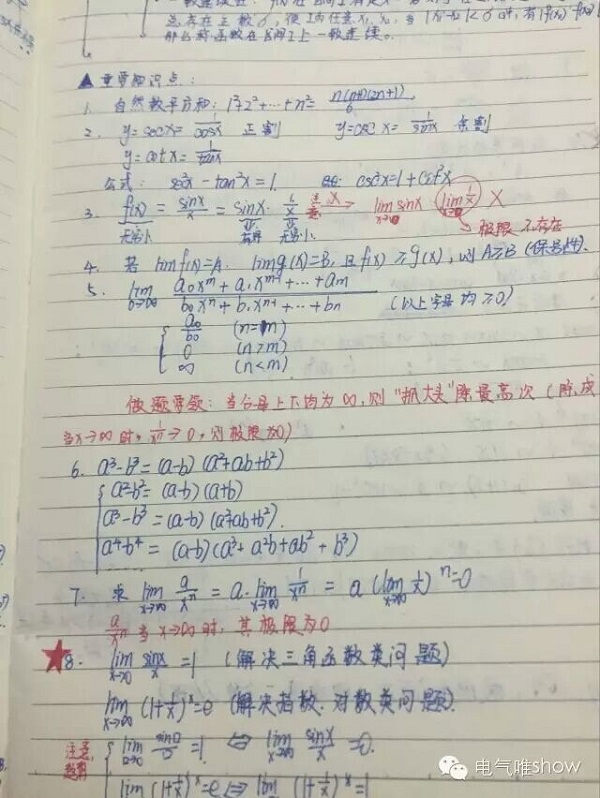 总存在正数δ,使I内任意x₁,x₂,当|x₁-x₂|<δ时,有|f(x₁)-f(x₂)|
那么称函数在区间I上一致连续。
▲重要知识点:
1. 自然数平方和:1²+2²+…+n²=n(n+1)(2n+1)/6
2. y=secx=1/cosx 正割 y=cscx=1/sinx 余割
y=cotx=1/tanx
公式: sec²x-tan²x=1. csc²x=1+cot²x
3. f(x)=sinx/x=sinx·1/x 注意 x→ lim(x→∞)sinx lim(x→∞)1/x X
无穷小 有界 无穷小 极限不存在
4. 若limf(x)=A. limg(x)=B, 且f(x)≥g(x),则A≥B(保号性).
5. lim (a₀xᵐ+a₁xᵐ⁻¹+…+aₘ)/(b₀xⁿ+b₁xⁿ⁻¹+…+bₙ) (以上字母均≥0)
{ a₀/b₀ (n=m)
0 (n>m)
∞ (n<m)
做题思路:当分母上下均为∞,则"抓大头"除最高次(除成
当x→∞时,1/xⁿ→0,则极限为0)
6. a³-b³=(a-b)(a²+ab+b²)
{ a²-b²=(a-b)(a+b)
a³-b³=(a-b)(a²+ab+b²).
a⁴-b⁴=(a-b)(a³+a²b+ab²+b³)
7. 求 lim(x→∞) a/xⁿ = a·lim(x→∞) 1/xⁿ = a(lim(x→∞) 1/x)ⁿ=0
a/xⁿ 当x→∞时,其极限为0
★8. lim(x→0) sinx/x=1 (解决三角函数类问题)
lim(x→∞) (1+1/x)ˣ=e (解决指数、对数类问题).
注意 { lim(□→0) sin□/□=1. ⇔ lim(x→∞) sinx/x=0.
lim(1+1/x)ˣ=e ⇔ lim(1+1/x)ˣ=1
电气唯show